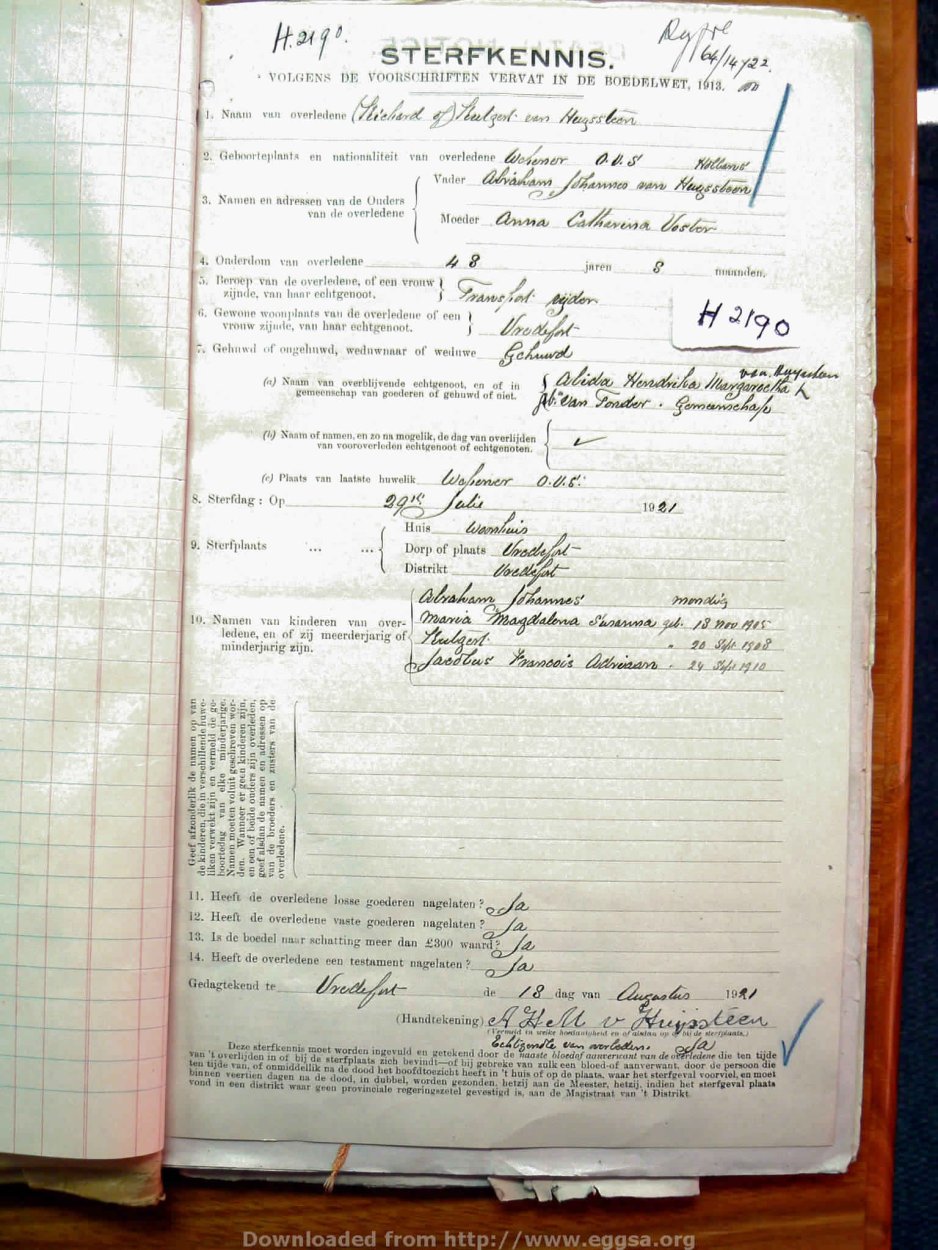 H.2190.
64/14/22.
STERFKENNIS.
VOLGENS DE VOORSCHRIFTEN VERVAT IN DE BOEDELWET, 1913.
1. Naam van overledene (Richard of) Hulzert van Huyssteen
2. Geboorteplaats en nationaliteit van overledene Wepener O.V.S Hollans
3. Namen en adressen van de Ouders van de overledene
Vader Abraham Johannes van Huyssteen
Moeder Anna Catharina Voster
4. Ouderdom van overledene 48 jaren 8 maanden.
5. Beroep van de overledene, of een vrouw
zijnde, van haar echtgenoot. Transport rijder
6. Gewone woonplaats van de overledene of een
vrouw zijnde, van haar echtgenoot. Vredefort
H 2190
7. Gehuwd of ongehuwd, weduwnaar of weduwe Gehuwd
(a) Naam van overblijvende echtgenoot, en of in
gemeenschap van goederen of gehuwd of niet.
Alida Hendrika Margaretha
van Huyssteen
van Tonder. Gemeenschap
(b) Naam of namen, en zo na mogelik, de dag van overlijden
van vooroverleden echtgenoot of echtgenoten.
(c) Plaats van laatste huwelik Wepener O.V.S.
8. Sterfdag: Op 29 Julie 1921
9. Sterfplaats ... ...
Huis Woonhuis
Dorp of plaats Vredefort
Distrikt Vredefort
10. Namen van kinderen van over-
ledene, en of zij meerderjarig of
minderjarig zijn.
Abraham Johannes mondig
Maria Magdalena Susanna geb. 13 Nov 1905
Hulzert " 20 Sept 1908
Jacobus Francois Adriaan " 24 Sept 1910
Geef afzonderlik de namen op van
de kinderen, die in verschillende huwe-
liken verwekt zijn en vermeld de ge-
boortedag van elke minderjarige.
Namen moeten voluit geschreven wor-
den. Wanneer er geen kinderen zijn,
en een of beide ouders zijn overleden,
geef alsdan de namen en adressen op
van de broeders en zusters van de
overledene.
11. Heeft de overledene losse goederen nagelaten? Ja
12. Heeft de overledene vaste goederen nagelaten? Ja
13. Is de boedel naar schatting meer dan £300 waard? Ja
14. Heeft de overledene een testament nagelaten? Ja
Gedagtekend te Vredefort de 18 dag van Augustus 1921
(Handtekening) A H M v Huijssteen
(Vermeld in welke hoedanigheid en of alsdan op of bij de sterfplaats.)
Echtgenote van overledene. Ja
Deze sterfkennis moet worden ingevuld en getekend door de naaste bloedof aanverwant van de overledene die ten tijde
van 't overlijden in of bij de sterfplaats zich bevindt—of bij gebreke van zulk een bloed-of aanverwant, door de persoon die
ten tijde van, of onmiddellik na de dood het hoofdtoezicht heeft in 't huis of op de plaats, waar het sterfgeval voorviel, en moet
binnen veertien dagen na de dood, in dubbel, worden gezonden, hetzij aan de Meester, hetzij, indien het sterfgeval plaats
vond in een distrikt waar geen provinciale regeringszetel gevestigd is, aan de Magistraat van 't Distrikt.
Downloaded from http://www.eggsa.org